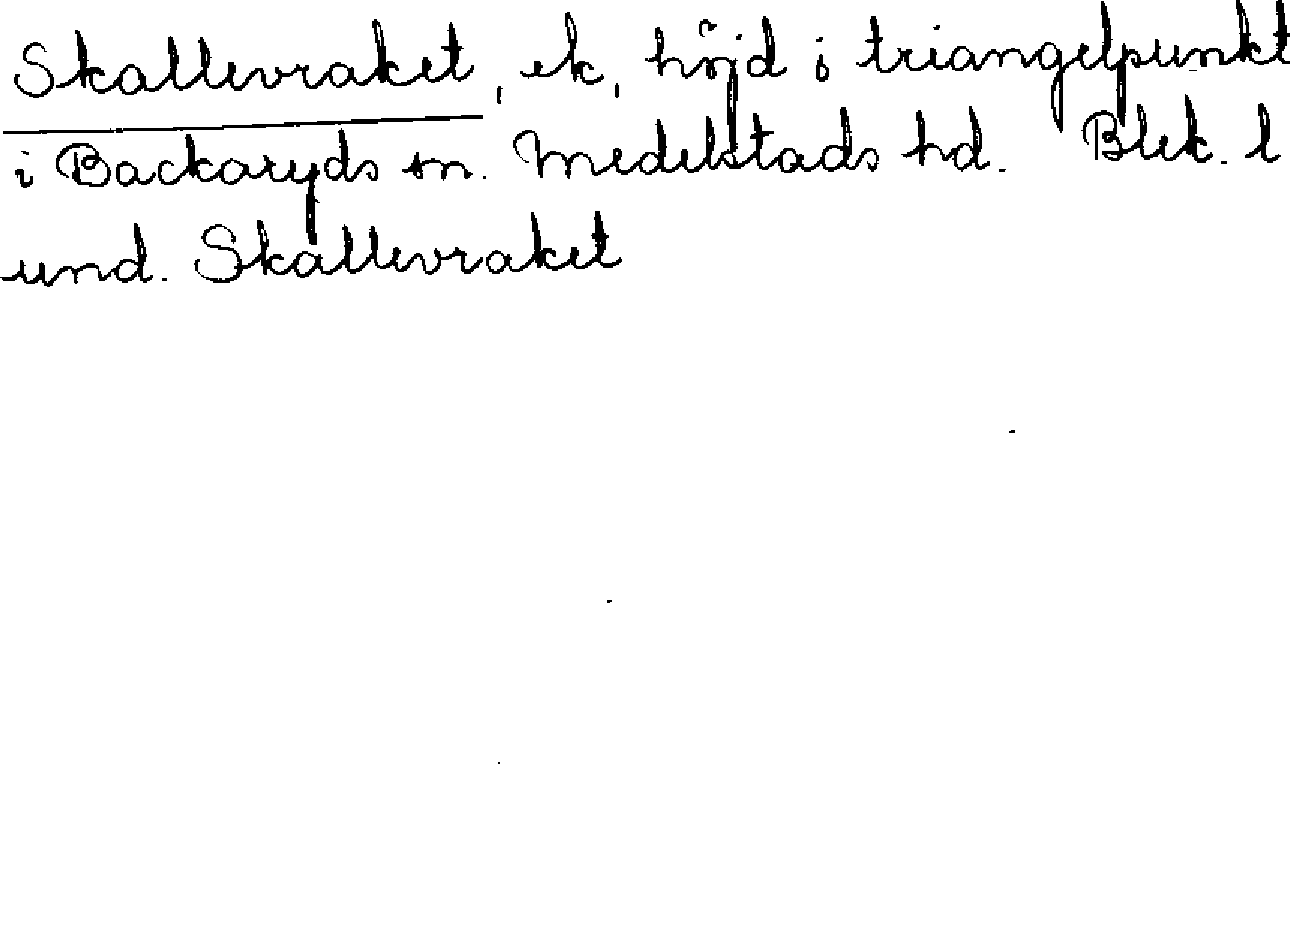 Skallevraket, ek, höjd i triangelpunkt
i Backaryds sn. Medelstads hd. Blek. l
und. Skallevraket